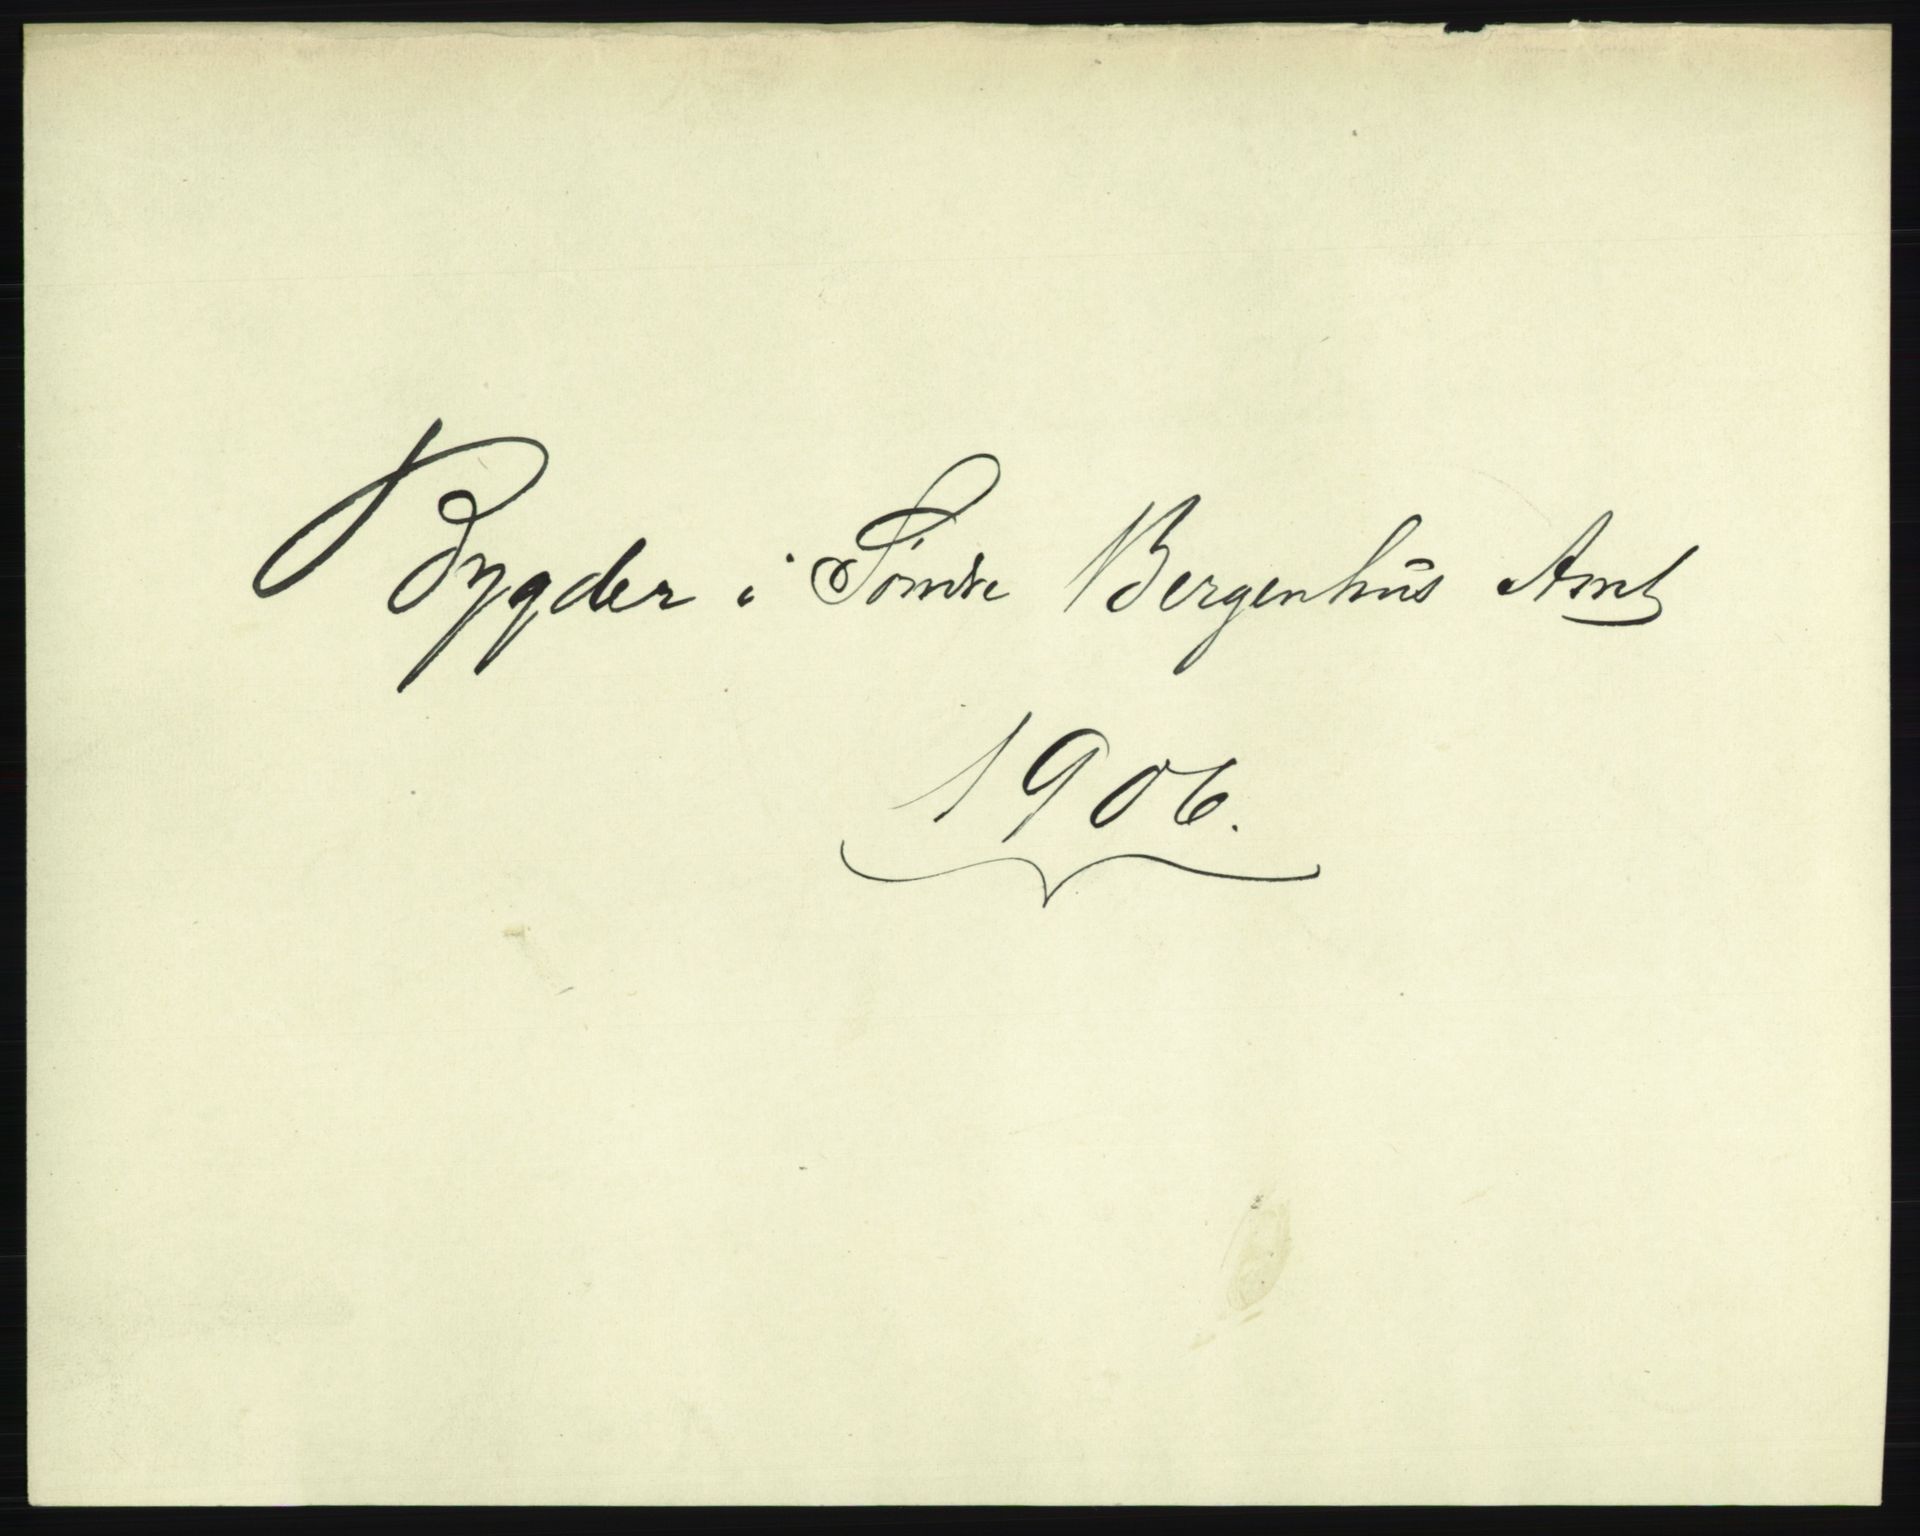 Bygder i Søndre Bergenhus Amt
1906.